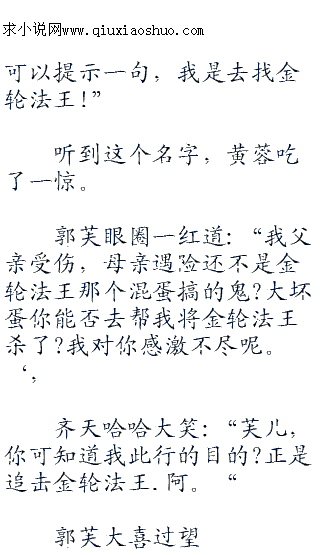 求小说网www.qiuxiaoshuo.com
可以提示一句，我是去找金
轮法王!”
听到这个名字，黄蓉吃
了一惊。
郭芙眼圈一红道:“我父
亲受伤，母亲遇险还不是金
轮法王那个混蛋搞的鬼?大坏
蛋你能否去帮我将金轮法王
杀了?我对你感激不尽呢。
‘，
齐天哈哈大笑:“芙儿，
你可知道我此行的目的?正是
追击金轮法王.阿。“
郭芙大喜过望